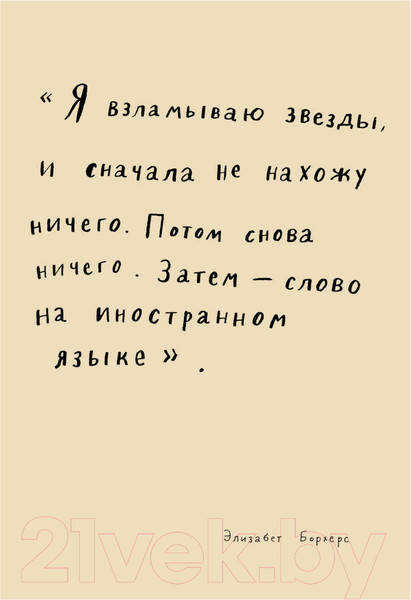 « Я взламываю звезды,
и сначала не нахожу
ничего. Потом снова
ничего. Затем — слово
на иностранном
языке ».
Элизабет Борхерс
21vek.by